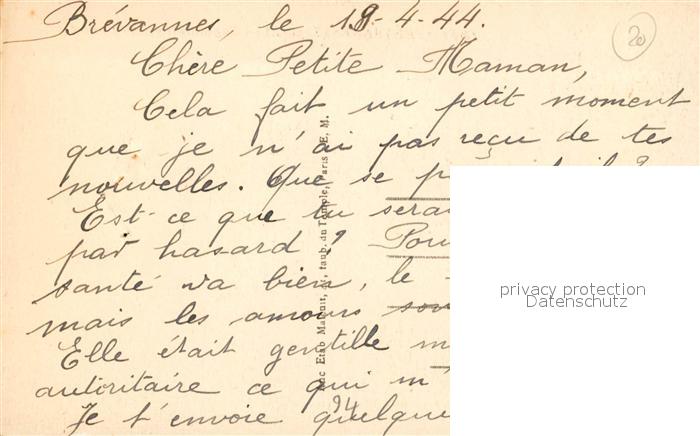 Brévannes, le 19-4-44.
20
Chère Petite Maman,
Cela fait un petit moment
que je n'ai pas reçu de tes
nouvelles. Que se
Est-ce que tu
par hasard ?
santé va bien, le
mais les amours
Elle était gentille
autoritaire ce qui m'
Je t'envoie
94
privacy protection
Datenschutz